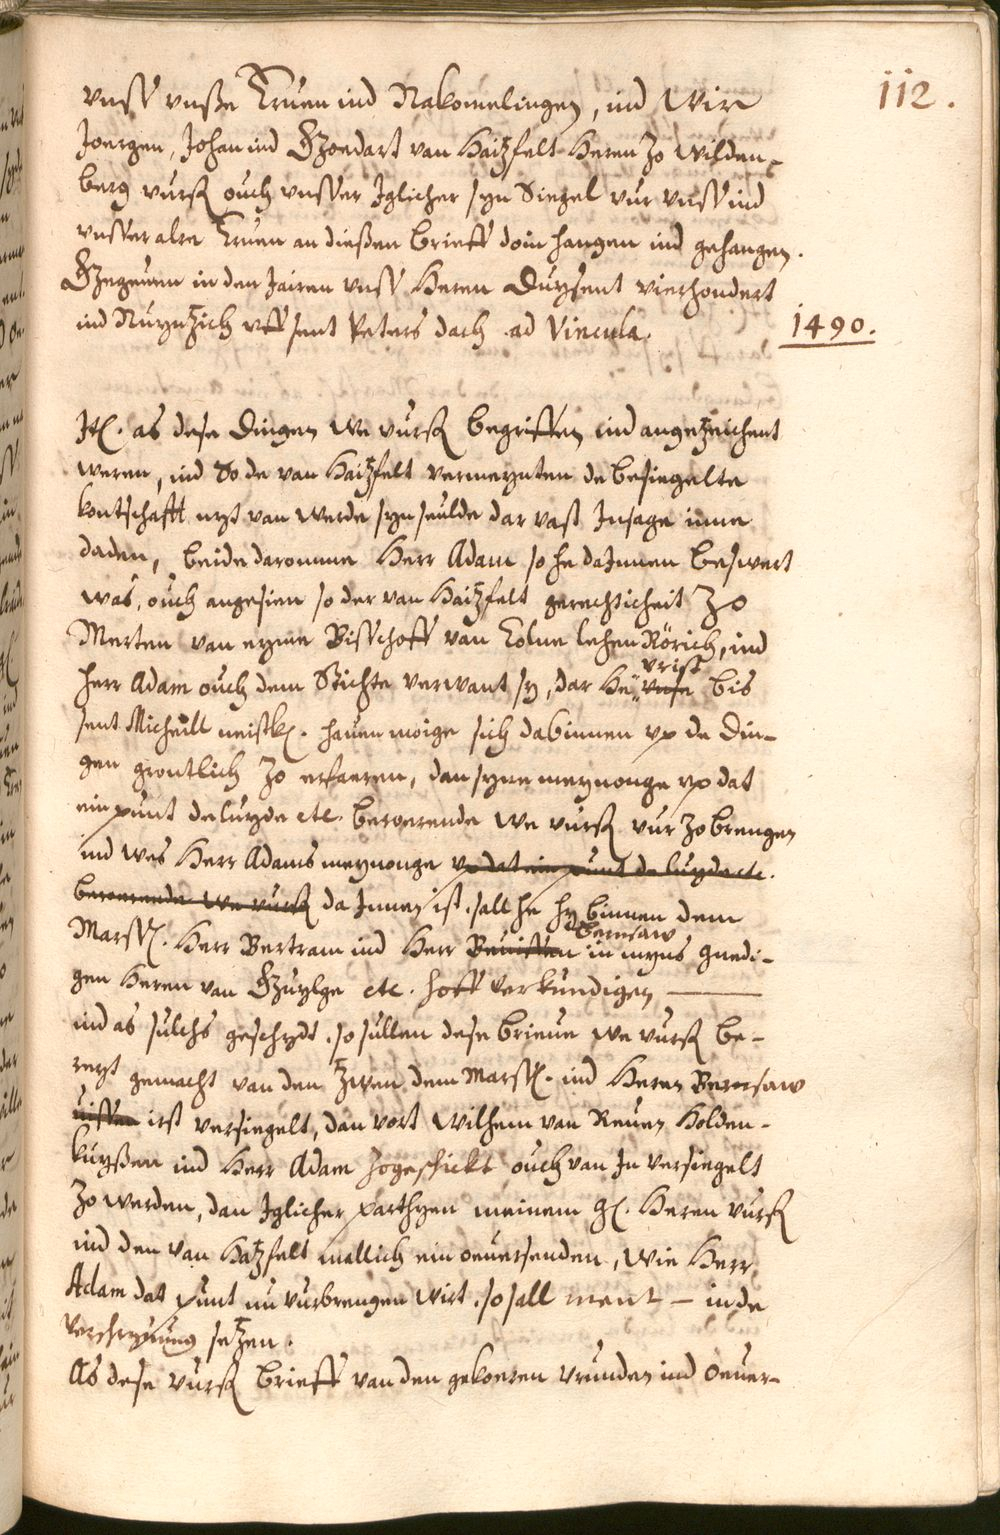 112.
vnss vnße Eruen ind Nakomelingen, ind Wir
Joergen, Johan ind Ghoedart van Haitzfelt Heren zo Wilden-
berg vursz ouch vnsser Jglicher syn Siegel vur vnss ind
vnsser alre Eruen an dießen brieff doin hangen ind gehangen.
Ghegeuen in den Jairen vnss Heren Duysent vierhondert
ind Nuyntzich vff sent Peters dach ad Vincula.
1490.
Jt. as dese Dingen we vursz begriffen ind angezeichent
weren, ind So de van Haitzfelt vermeynten de besiegelte
kontschafft nyt van werde syn seulde dar vast Insage inne
daden, beide daromme Herr Adam so he da Innen beswert
was, ouch angesien so der van Haitzfelt gerechticheit zo
Merten van eyme Bisschoff van Colne lehen Rörich, ind
vrist
herr Adam ouch dem Stichte verwant sy, dar He bis
sent Micheill neistk. hauen moige sich dabinnen vp de Din-
gen grontlich zo erfaeren, dan syne meynonge vp dat
ein punt de luyde etc. beroerende we vursz vur zobrengen
ind wes Herr Adams meynonge vp dat ein punt de luyde etc.
beroerende we vursz da Innen ist, sall he hy binnen dem
bernsaw
Marss. Herr Bertram ind Herr in myns gnedi-
gen Heren van Ghuylge etc. hoff verkundigen
ind as sulchs geschydt, so sullen dese brieue we vursz be-
reyt gemacht van den zwen dem Marss. ind Heren Bernsaw
irst versiegelt, dan vort Wilhem van Reuen Holden-
kuyßen ind Herr Adam zogeschickt ouch van In versiegelt
zo werden, dan Jglicher parthyen meinem g. Heren vursz
ind den van Hatzfelt mallich ein oeuersenden, wie Herr
Adam dat punt nu vurbrengen wirt, so sall ment - in de
verschryuung setzen.
As dese vursz brieff van den gekoeren vrunden ind oeuer-